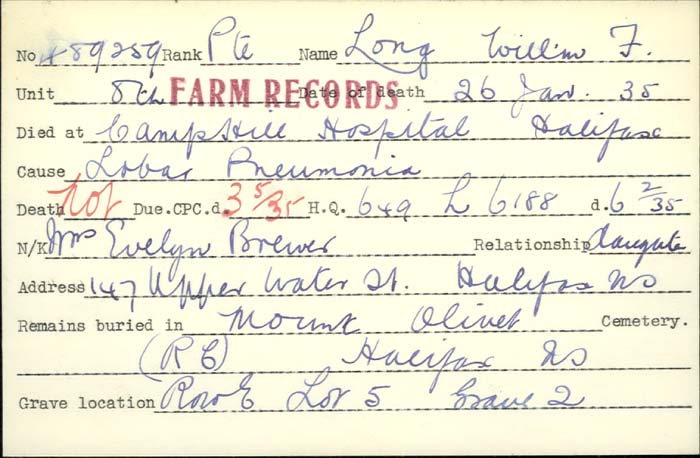 No 489259 Rank Pte Name Long Willm F.
Unit 8th FARM RECORDS Date of death 26 Jan. 35
Died at Camp Hill Hospital Halifax
Cause Lobar Pneumonia
Death Not Due. CPC.d. 3 5/35 H.Q. 649 L 6188 d. 6 2/35
N/K Mrs Evelyn Brewer Relationship daughter
Address 147 Upper Water St. Halifax NS
Remains buried in Mount Olivet Cemetery.
(RC) Halifax NS
Grave location Row E Lot 5 Grave 2